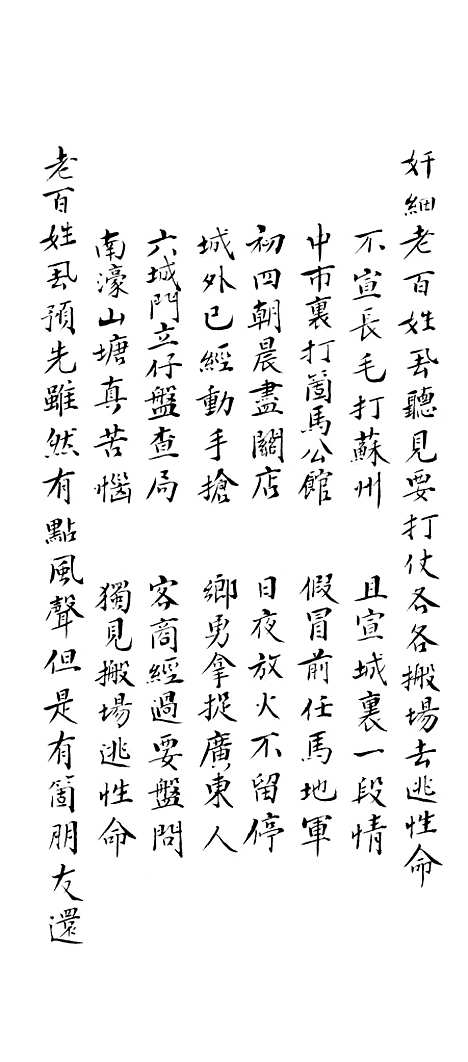 奸細老百姓䎽聽見要打仗各各搬場去逃性命
不宣長毛打蘇州　且宣城裏一段情
中市裏打箇馬公館　假冒前任馬地軍
初四朝晨盡關店　日夜放火不留停
城外已經動手搶　鄉勇拿捉廣東人
六城門立仔盤查局　客商經過要盤問
南濠山塘真苦惱　獨見搬場逃性命
老百姓䎽預先雖然有點風聲但是有箇朋友還